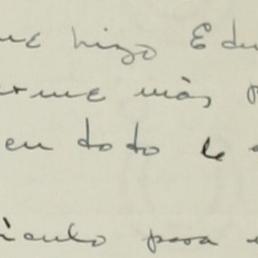 me hizo Edu
rme más p
en todo le
ículo para